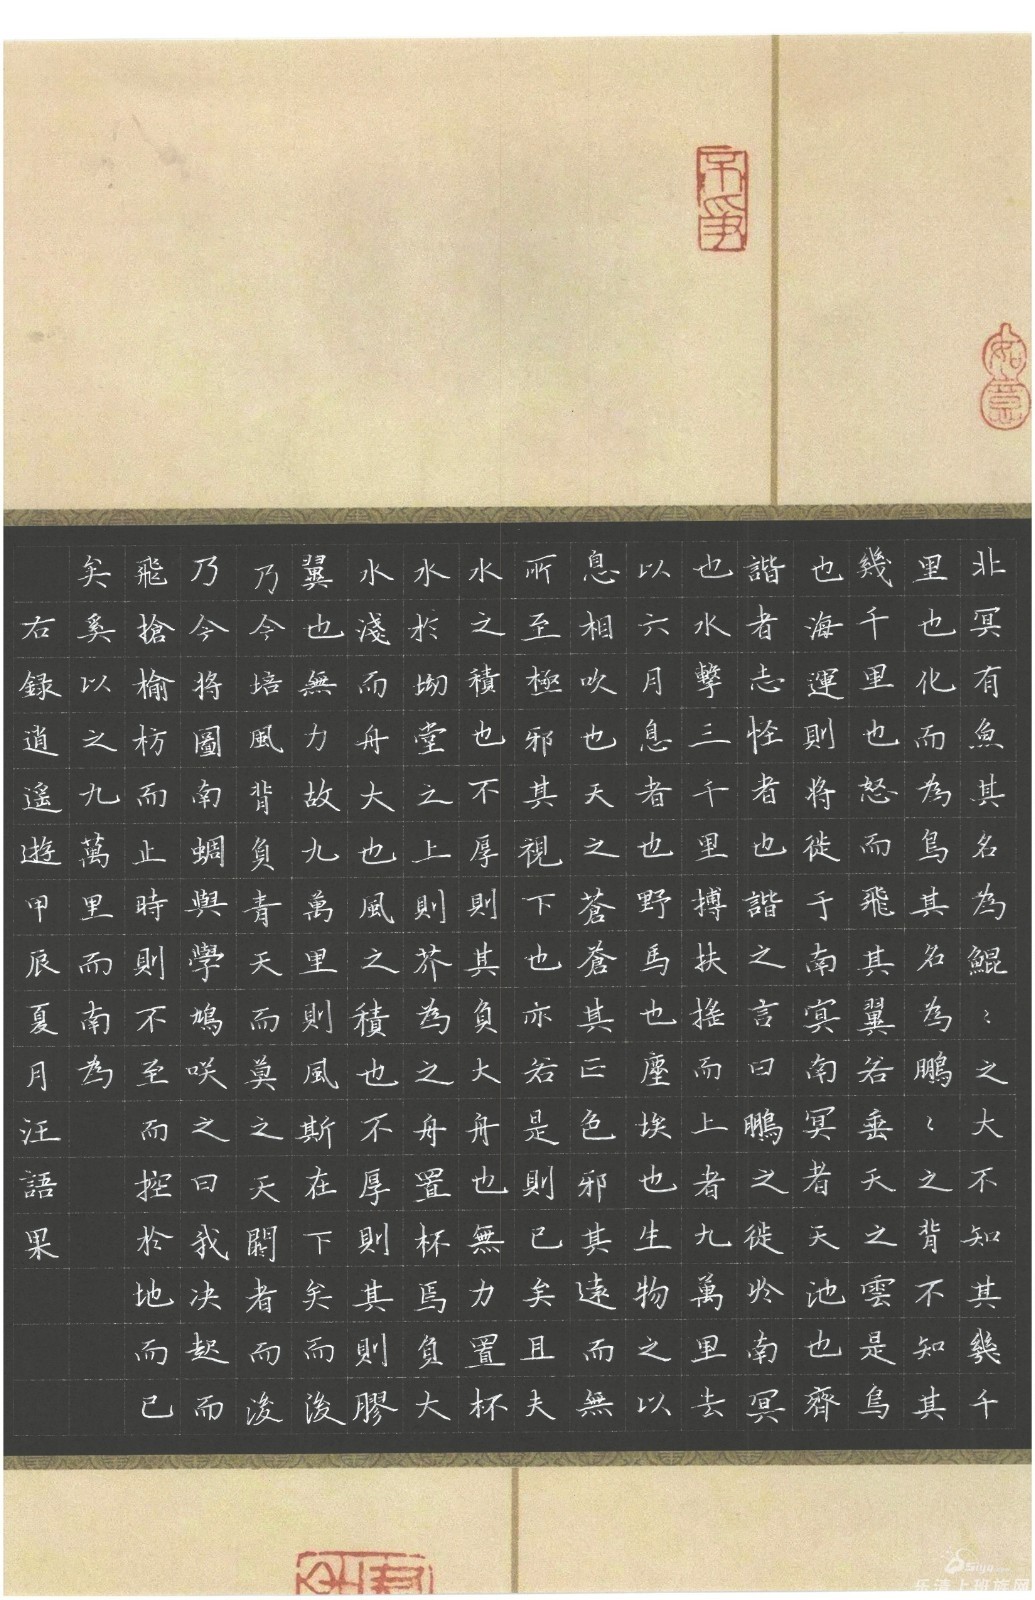 北冥有魚其名為鯤〻之大不知其幾千
里也化而為鳥其名為鵬〻之背不知其
幾千里也怒而飛其翼若垂天之雲是鳥
也海運則將徙于南冥南冥者天池也齊
諧者志怪者也諧之言曰鵬之徙於南冥
也水擊三千里摶扶搖而上者九萬里去
以六月息者也野馬也塵埃也生物之以
息相吹也天之蒼蒼其正色邪其遠而無
所至極邪其視下也亦若是則已矣且夫
水之積也不厚則其負大舟也無力置杯
水於坳堂之上則芥為之舟置杯焉負大
水淺而舟大也風之積也不厚則其則膠
翼也無力故九萬里則風斯在下矣而後
乃今培風背負青天而莫之夭閼者而後
乃今將圖南蜩與學鳩咲之曰我决起而
飛搶榆枋而止時則不至而控於地而已
矣奚以之九萬里而南為
右録逍遙遊甲辰夏月汪語果
不爭
如意
乐清上班族网